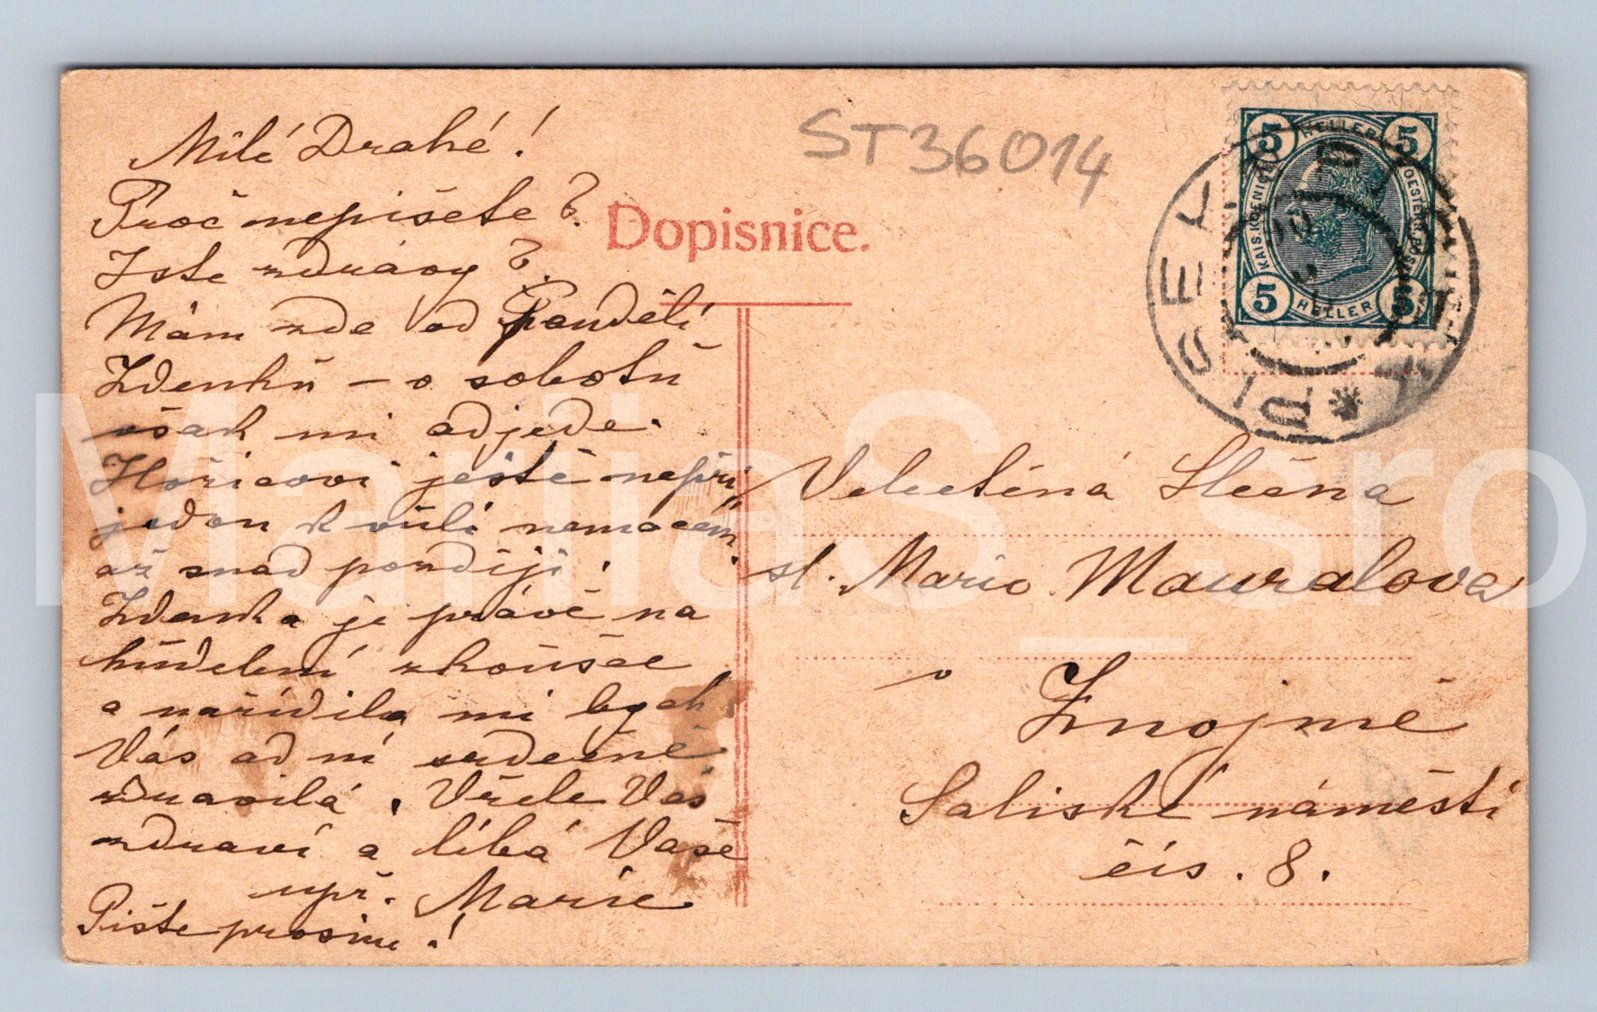 Milé Drahé!
Proč nepíšete?
Jste zdrávy?
Mám zde od Pondělí
Zdenku – v sobotu
však mi odjede.
Hořicovi ještě nepři
jedou k vůli nemocem
až snad později.
Zdenka je právě na
hudební zkoušce
a nařídila mi bych
Vás od ní srdečně
zdravila. Vřele Vás
zdraví a líbá Vaše
upř. Marie
Pište prosím!
ST36014
Dopisnice.
5 HELLER 5
KAIS. KOENIGL.
OESTERR. POST
5 HELLER 5
PISEK
Velectěná Slečna
sl. Marie Mouralova
v
Znojmě
Saliské náměstí
čís. 8.
MarliaS_sro